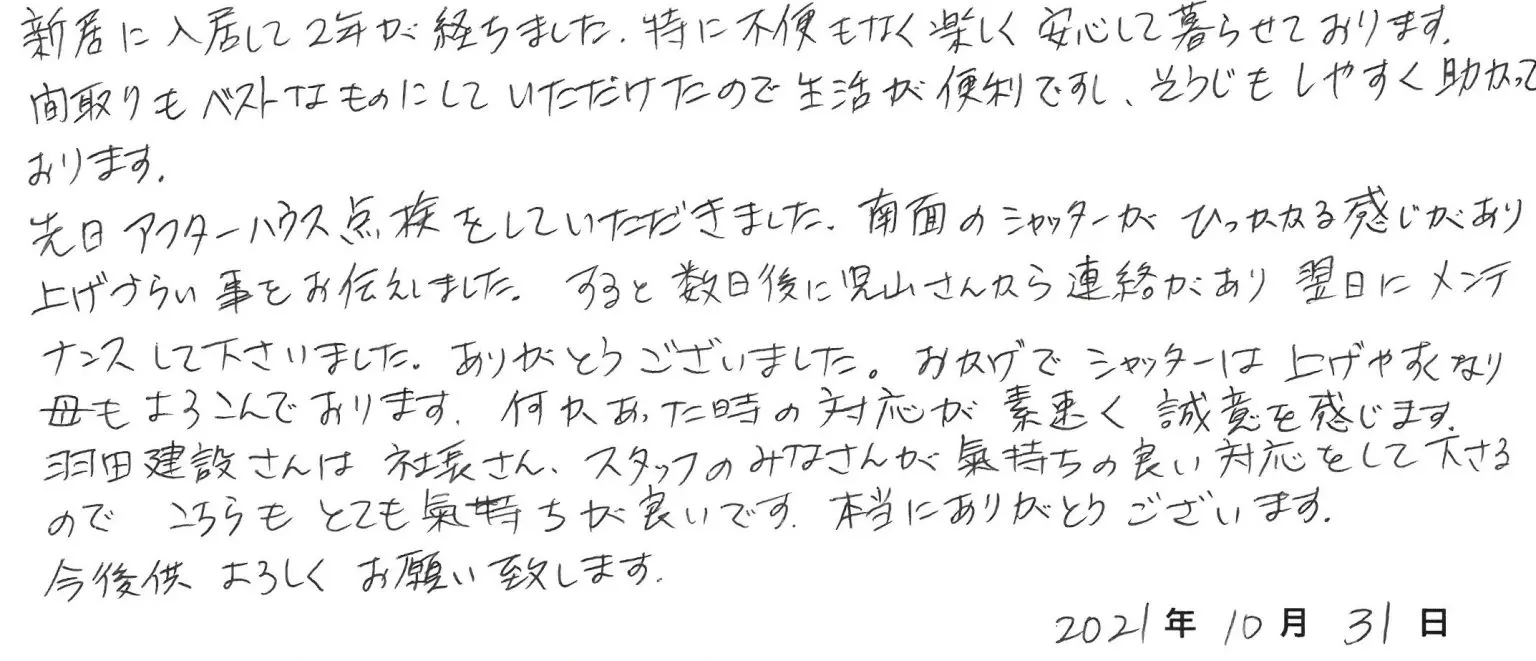 新居に入居して2年が経ちました. 特に不便もなく楽しく安心して暮らせております.
間取りもベストなものにしていただけたので生活が便利ですし、そうじもしやすく助かって
おります.
先日アフターハウス点検をしていただきました. 南面のシャッターがひっかかる感じがあり
上げづらい事をお伝えしました。 すると数日後に児山さんから連絡があり 翌日にメンテ
ナンスして下さいました。ありがとうございました。おかげでシャッターは上げやすくなり
母もよろこんでおります. 何かあった時の対応が素速く誠意を感じます.
羽田建設さんは社長さん、スタッフのみなさんが氣持ちの良い対応をして下さる
ので こちらもとても氣持ちが良いです. 本当にありがとうございます.
今後供よろしくお願い致します.
2021年10月31日